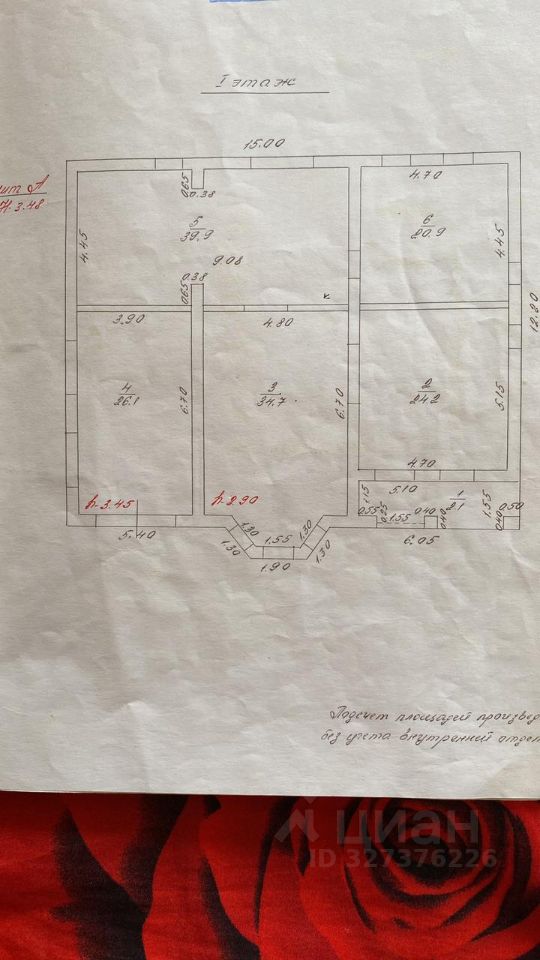 I этаж
15.00
лит А
Н.3.48
0.65
0.38
4.70
4.45
5
39.9
6
20.9
4.45
9.08
0.38
0.65
12.80
3.90
4.80
4
26.1
6.70
3
34.7
6.70
2
24.2
5.15
4.70
h.3.45
h.2.90
5.10
1.15
1
2.1
1.55
0.55
0.25
1.55
0.40
0.40
0.40
0.50
5.40
1.30
1.30
1.55
1.90
1.30
1.30
6.05
Подсчет площадей произвед
без учета внутренний отдел
циан
ID 327376226